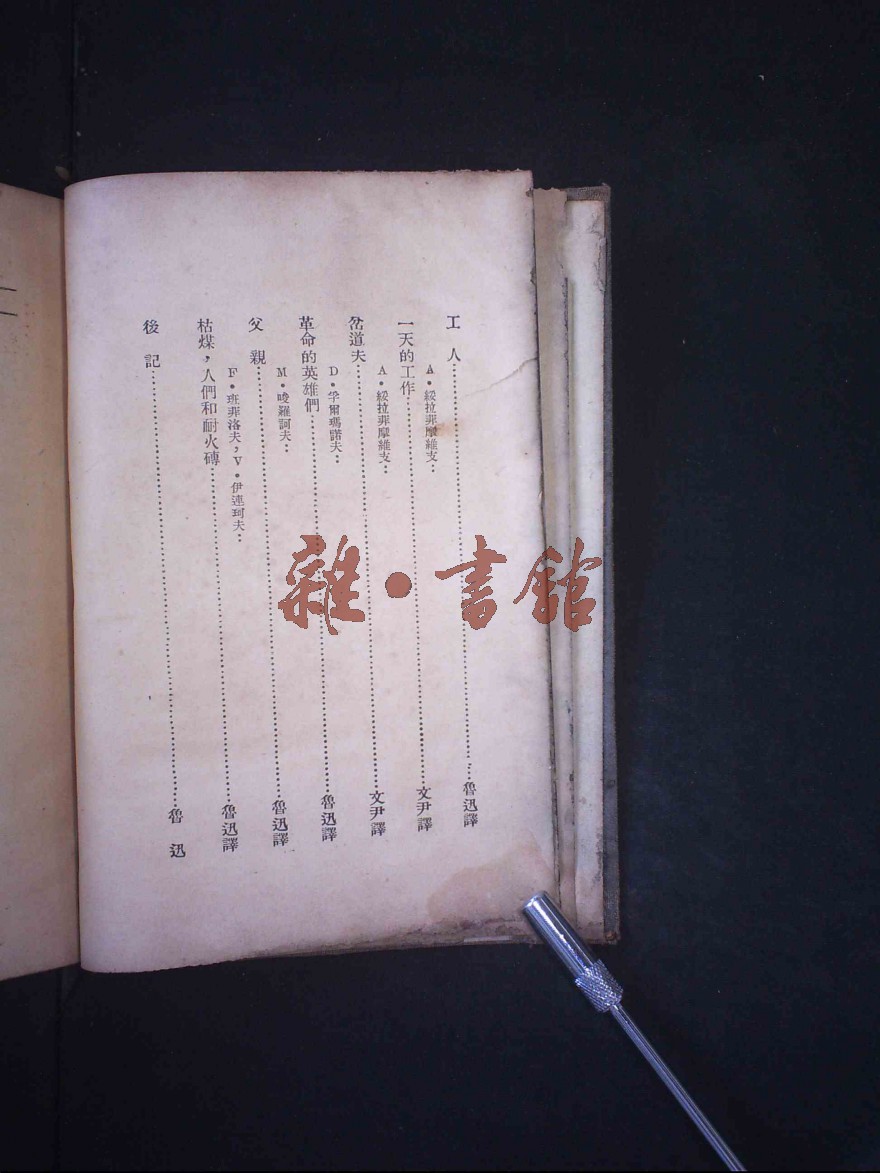 工人……魯迅譯
A・綏拉菲摩維支：
一天的工作……文尹譯
A・綏拉菲摩維支：
岔道夫……文尹譯
D・孚爾瑪諾夫：
革命的英雄們……魯迅譯
M・唆羅訶夫：
父親……魯迅譯
F・班菲洛夫，V・伊連珂夫：
枯煤，人們和耐火磚……魯迅譯
後記……魯迅
雜・書館